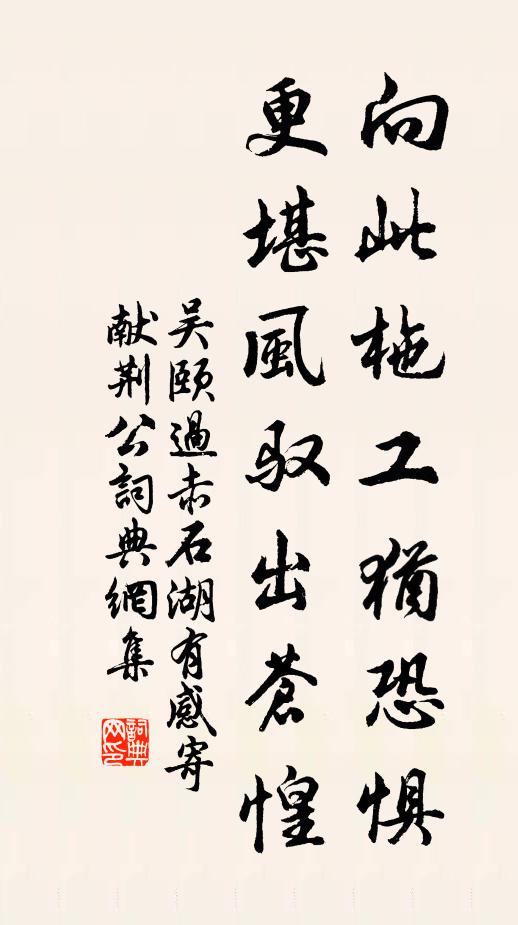 向此柂工猶恐惧
更堪風驭出蒼惶
吴頤過赤石湖有感寄
献荆公詞典網集
詞典网印